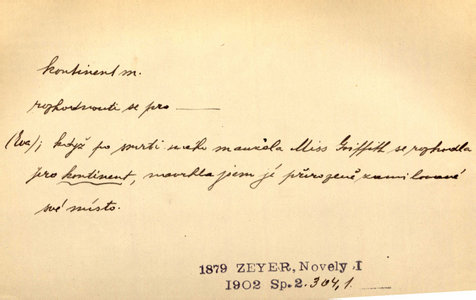 kontinent m.
rozhodnouti se pro ———
(Eva); když po smrti mého manžela Miss Griffith se rozhodla
pro kontinent, navrhla jsem jí přirozeně zamilované
své místo.
1879 ZEYER, Novely I
1902 Sp. 2. 304, 1.